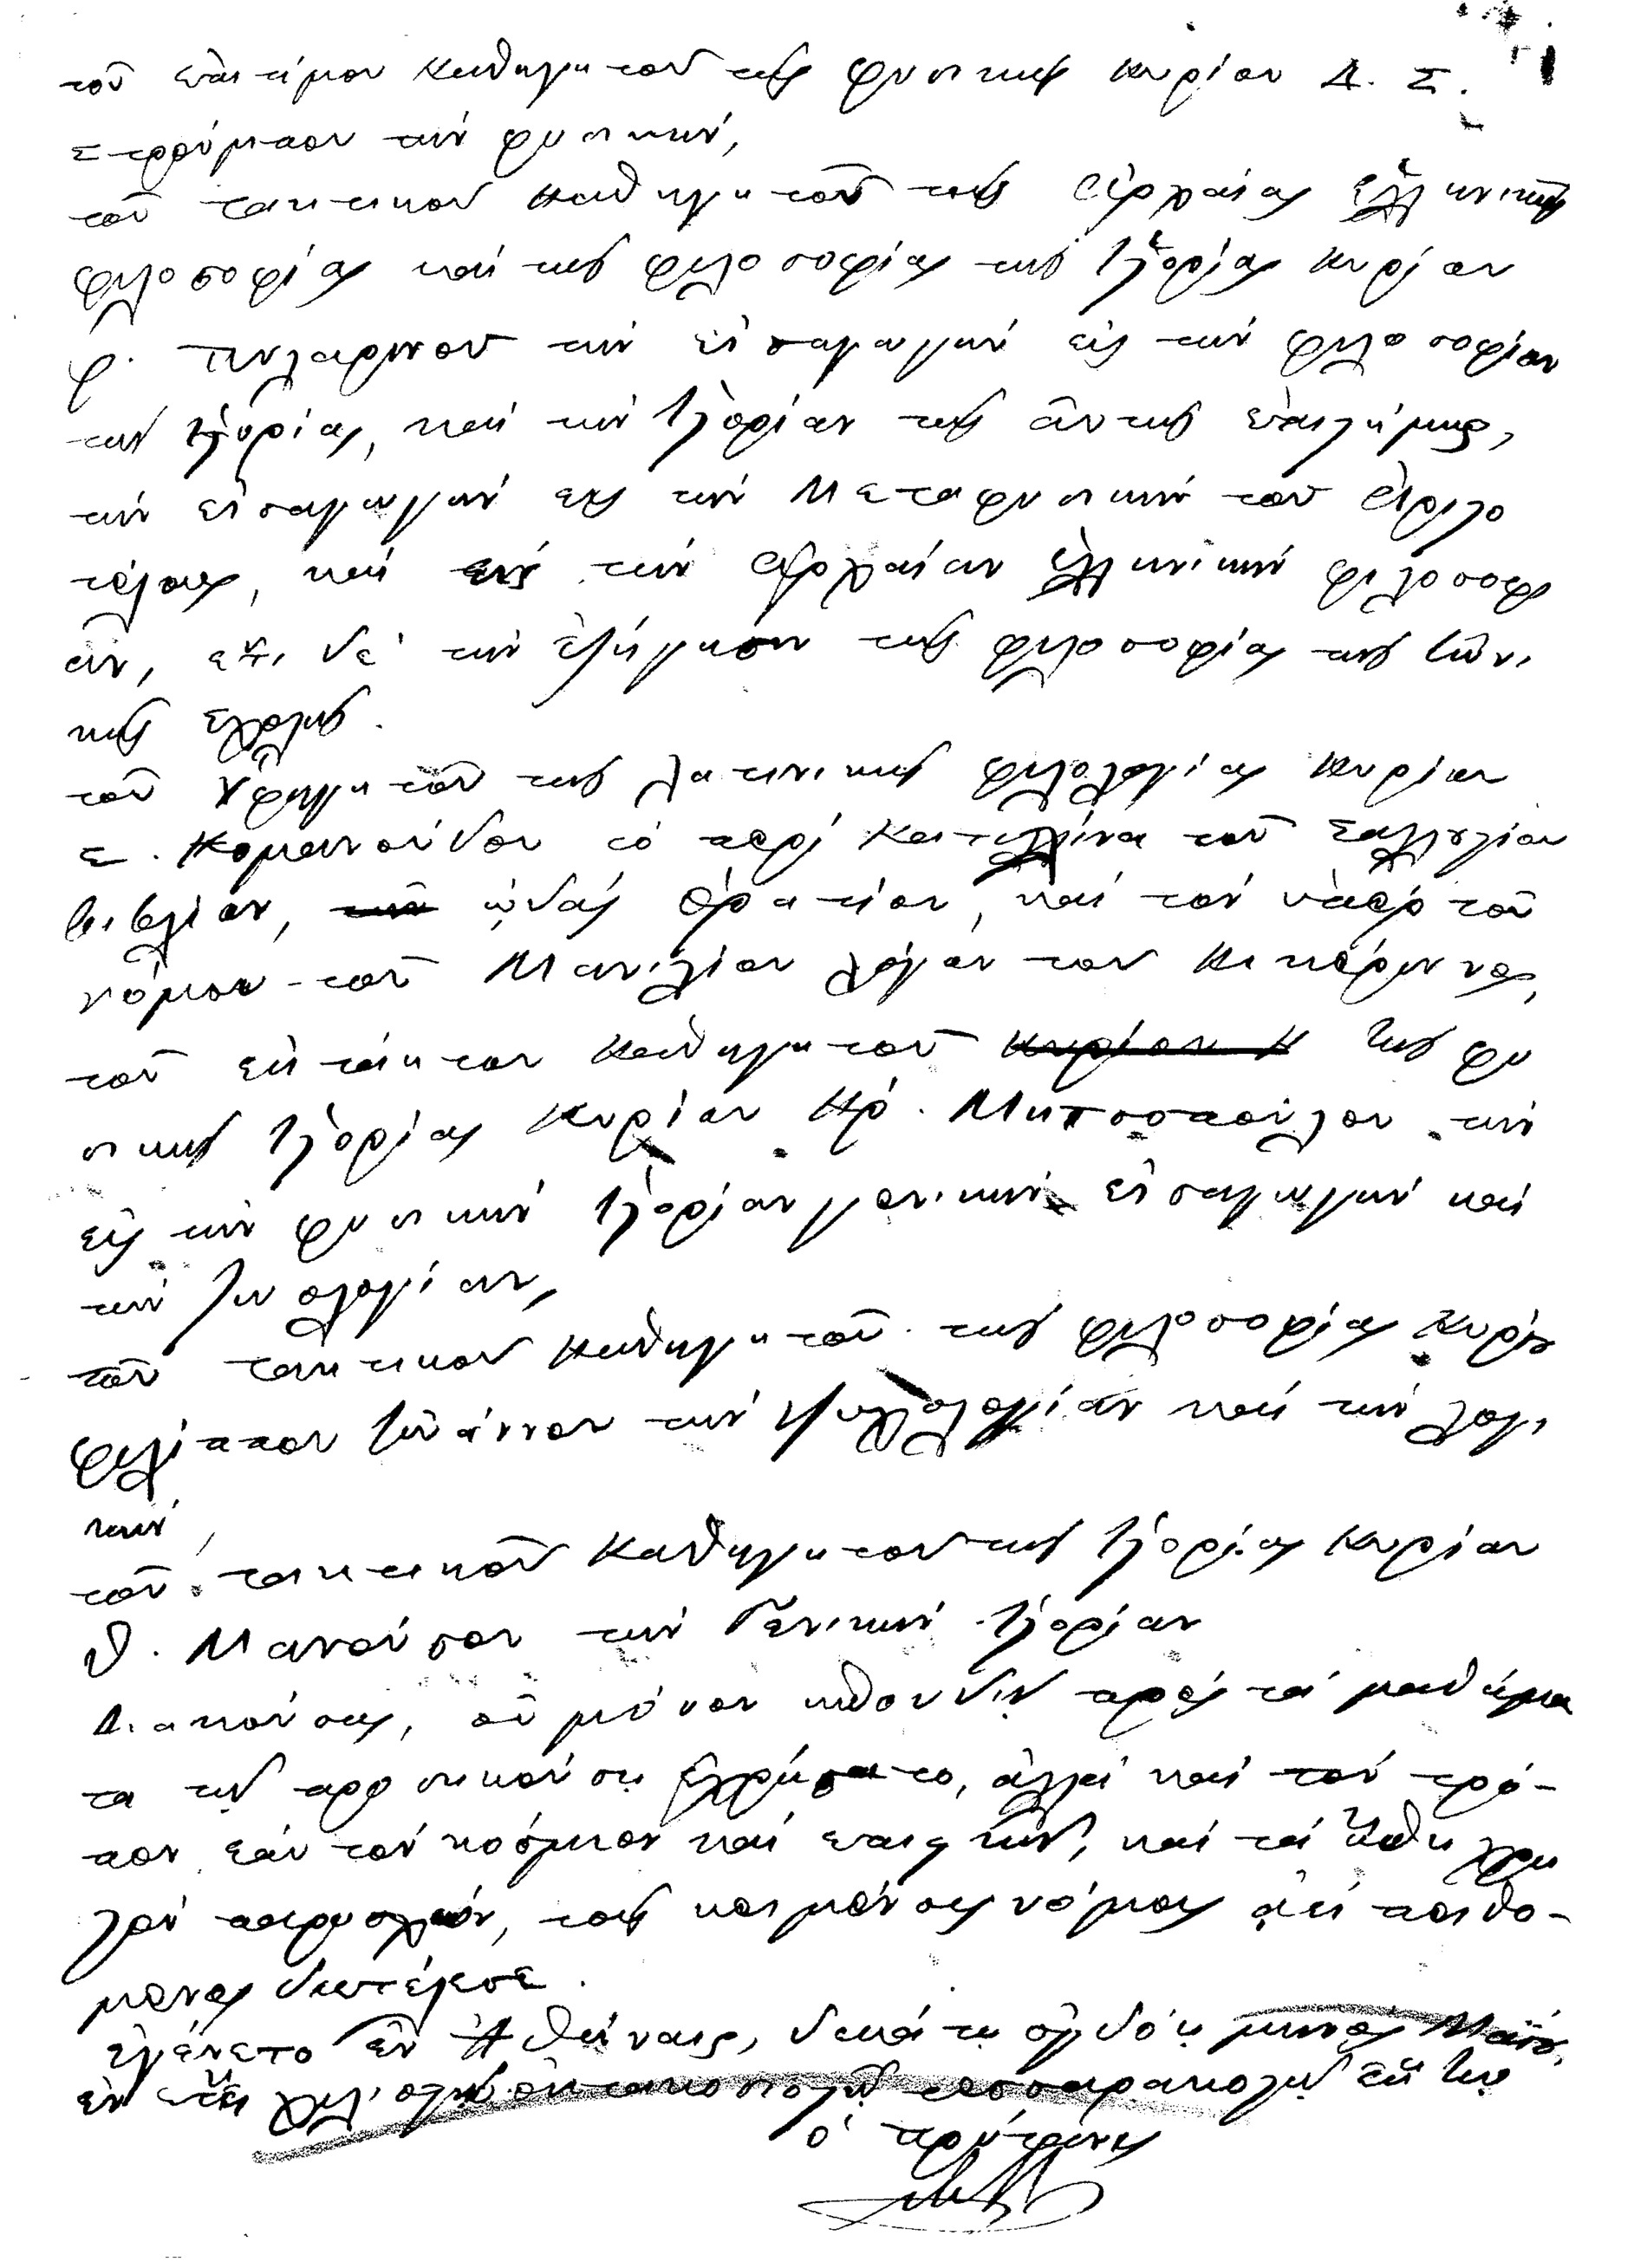 τοῦ ἐπιτίμου καθηγητοῦ τῆς φυσικῆς κυρίου Δ. Σ.
Στρούμπου τήν φυσικήν,
τοῦ τακτικοῦ καθηγητοῦ τῆς ἀρχαίας ἑλληνικῆς
φιλοσοφίας καί τῆς φιλοσοφίας τῆς ἱστορίας κυρίου
τήν εἰσαγωγήν εἰς τήν φιλοσοφίαν
τῆς ἱστορίας, καί τήν ἱστορίαν τῆς αὐτῆς ἐπιστήμης,
τήν εἰσαγωγήν εἰς τήν Μεταφυσικήν τοῦ Ἀριστο
τέλους, καί εἰς τήν ἀρχαίαν ἑλληνικήν φιλοσοφί
αν, ἔτι δέ τήν ἐξήγησιν τῆς φιλοσοφίας τῆς Ἰωνι
κῆς σχολῆς.
τοῦ ὑφηγητοῦ τῆς λατινικῆς φιλολογίας κυρίου
Σ. Κουμανούδου τό περί Κατιλλίνα τοῦ Σαλλουστίου
βιβλίον, ᾠδάς Ὁρατίου, καί τόν ὑπέρ τοῦ
νόμου τοῦ Μανιλίου λόγον τοῦ Κικέρωνος,
τοῦ ἐκτάκτου καθηγητοῦ κυρίου Η τῆς φυ
σικῆς ἱστορίας Κυρίου Ἡρ. Μητσοπούλου τήν
εἰς τήν φυσικήν ἱστορίαν γενικήν εἰσαγωγήν καί
τήν ζωολογίαν,
τοῦ τακτικοῦ καθηγητοῦ τῆς φιλοσοφίας κυρίου
Φιλίππου Ἰωάννου τήν ψυχολογίαν καί τήν λογι
κήν,
τοῦ τακτικοῦ καθηγητοῦ τῆς ἱστορίας Κυρίου
Θ. Μανούσου τήν Γενικήν ἱστορίαν
Διακούσας, οὐ μόνον σπουδῇ πρός τά μαθήμα
τα τῇ προσηκούσῃ ἐχρήσατο, ἀλλά καί τόν τρό-
πον ἐάν τόν κόσμιον καί ἐπιεικῆ, καί τά ἤθη χρη
στόν παρέσχεν, τοῖς κειμένοις νόμοις ἀεί πειθό-
μενος διετέλεσε.
ἐγένετο ἐν Ἀθήναις, δεκάτῃ ὀγδόῃ μηνός Μαΐου,
ἐν ἔτει χιλιοστῷ ὀκτακοσιοστῷ τεσσαρακοστῷ
ὁ πρύτανις